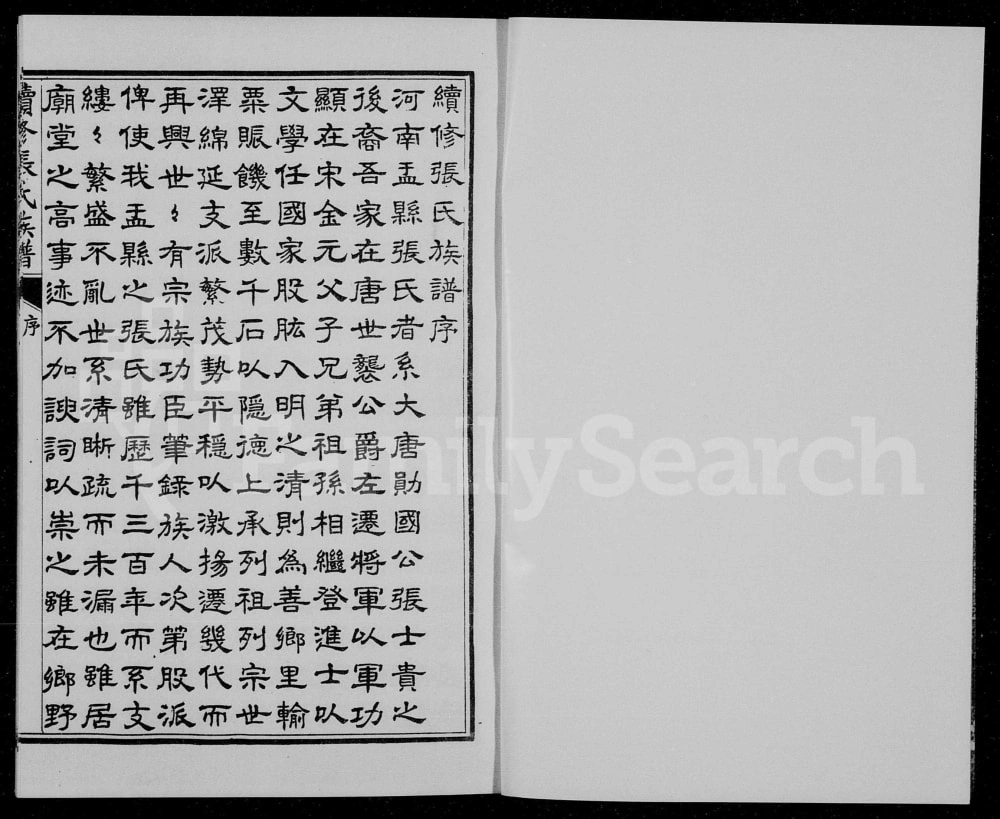 續修張氏族譜序
河南孟縣張氏者系大唐勛國公張士貴之
後裔吾家在唐世襲公爵左遷將軍以軍功
顯在宋金元父子兄弟祖孫相繼登進士以
文學任國家股肱入明之清則為善鄉里輸
粟賑饑至數千石以隱德上承列祖列宗世
澤綿延支派繁茂勢平穩以激揚遷幾代而
再興世々有宗族功臣筆錄族人次第股派
俾使我孟縣之張氏雖歷千三百年而系支
縷々繁盛不亂世系清晰疏而未漏也雖居
廟堂之高事迹不加諛詞以崇之雖在鄉野
續修張氏族譜
序
FamilySearch